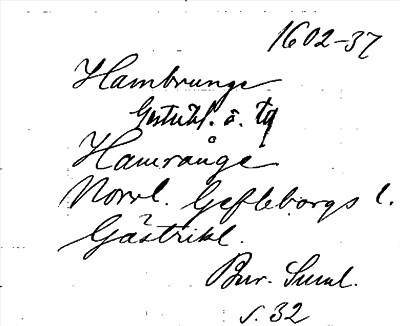 1602-37
Hambrunge
Gestrikl. o. tg
Hamrånge
Norrl. Gefleborgs l.
Gästrikl.
Bur. Suml.
s. 32